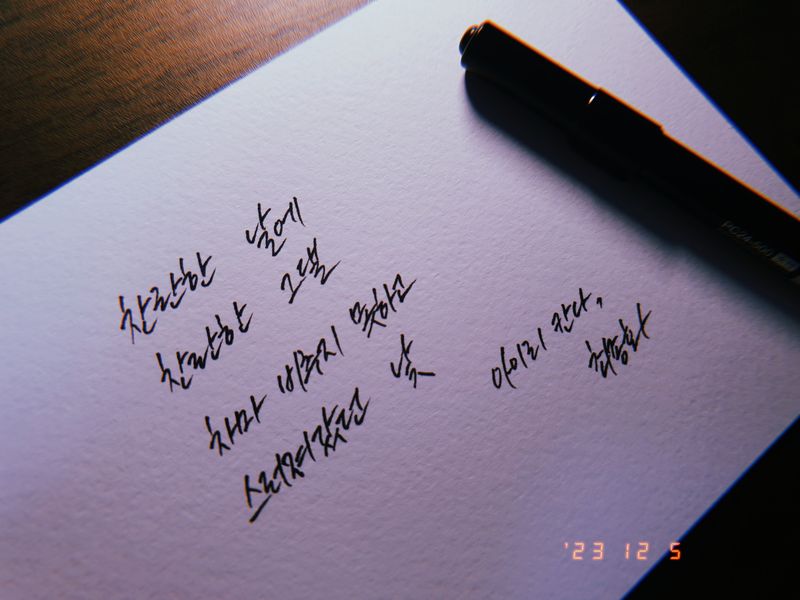 찬란한 날에
찬란한 그댈
차마 비추지 못하고
스러져갔던 낮
아이리 칸나,
최종화
'23 12 5